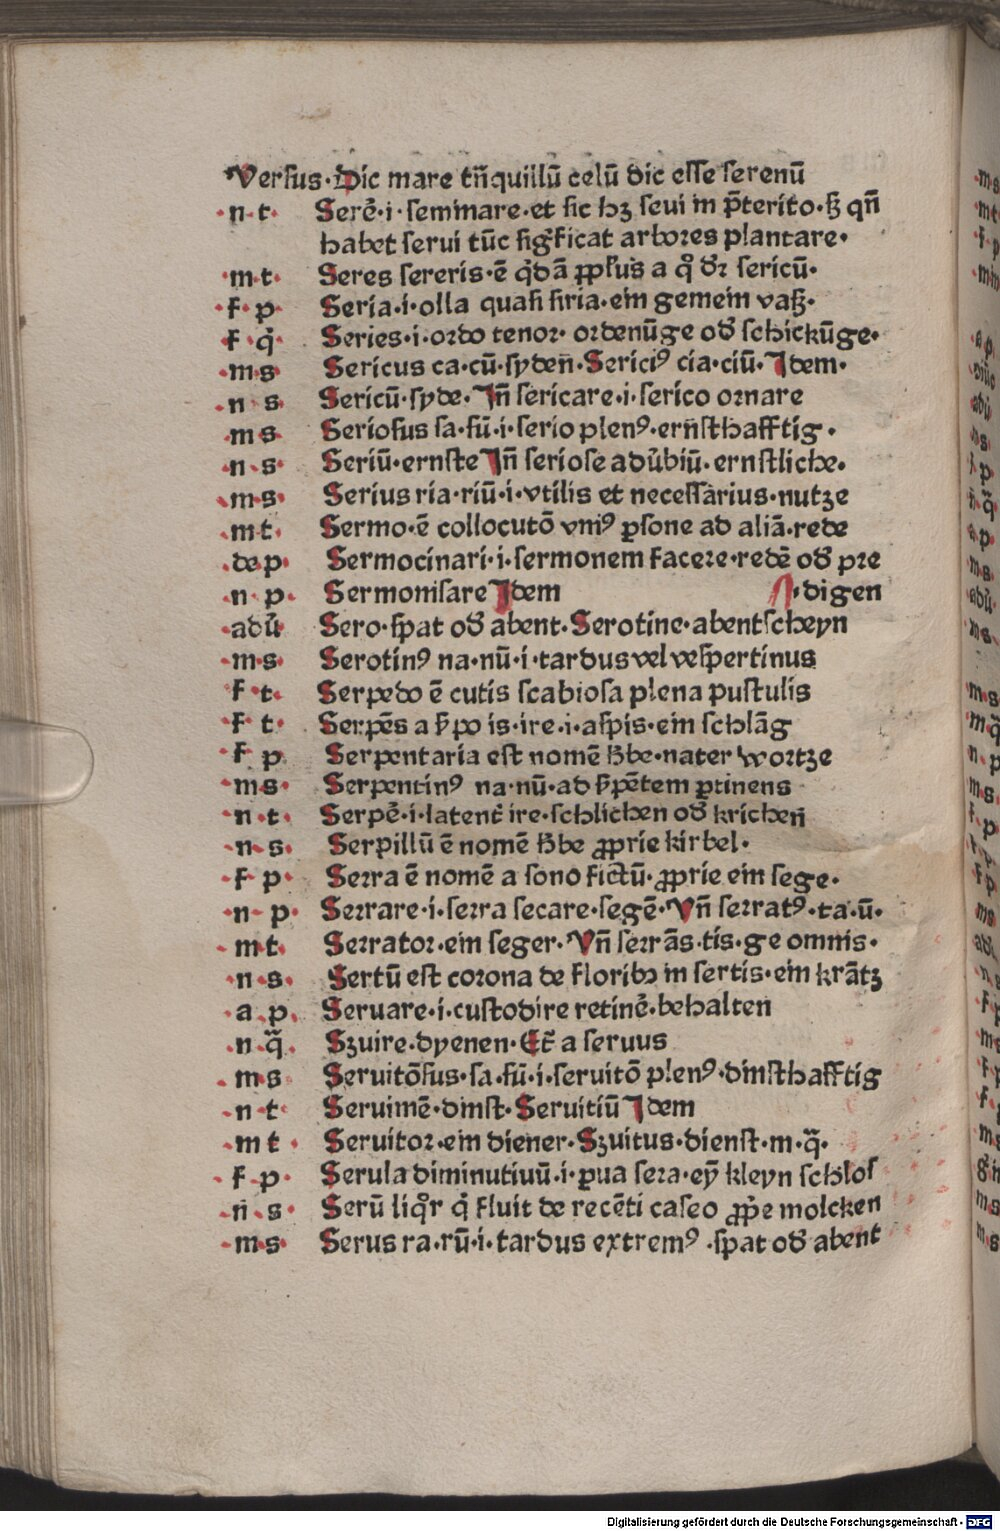 Versus·Dic mare tñquillū celū dic esse serenū
·n·t· Serē·i·seminare·et sic hꝫ seui in p̄terito·sꝫ qñ
habet serui tūc sigficat arbores plantare·
·m·t· Seres sereris·ē q̇dā ꝓpl'us a qͦ dr sericū·
·f·p· Seria·i·olla quasi siria·ein gemein vaß·
f·q̄· Series·i·ordo tenor· ordenūge od' schickūge·
·m·s Sericus ca·cū·syden̄·Sericiꝰ cia·ciū·Idem·
·n·s· Sericū·syde·Iñ sericare·i·serico ornare
·m·s· Seriosus sa·sū·i·serio plenꝰ·ernsthafftig·
·n·s· Seriū·ernste Iñ seriose adūbiū·ernstliche·
·m·s· Serius ria·riū·i·vtilis et necessarius·nutze
·m·t· Sermo·ē collocutō vniꝰ ꝑsone ad aliā·rede
·de·p· Sermocinari·i·sermonem facere·redē od' pre
·n·p· Sermonisare Idem ·digen
·adū· Sero·spat od' abent·Serotine·abentscheyn
·m·s· Serotinꝰ na·nū·i·tardus vel vespertinus
f·t· Serpedo ē cutis scabiosa plena pustulis
·f·t· Serpēs a s'po is·ire·i·aspis·ein schlāg
·f·p Serpentaria est nomē h'be·nater wortze
·m·s· Serpentinꝰ na·nū·ad s'pētem ꝑtinens
·n·t· Serpē·i·latent' ire·schlichen od' krichen̄
·n·s· Serpillū ē nomē h'be ꝓprie kirbel·
·f·p· Serra ē nomē a sono fictū·ꝓprie ein sege·
·n·p· Serrare·i·serra secare·segē·Vñ serratꝰ·ta·ū·
·m·t· Serrator·ein seger·Vñ serrās·tis·ge omnis·
·n·s· Sertū est corona de floribꝫ in sertis·ein krātz
·a·p· Seruare·i·custodire retinē·behalten̄
·n·q̄· Sꝫuire·dyenen·Et' a seruus
·m·s Seruitōsus·sa·sū·i·seruitō plenꝰ·dinsthafftig
·n·t· Seruimē·dinst·Seruitiū Idem
·m t· Seruitor·ein diener·Sꝫuitus·dienst·m·q̄·
f·p· Serula diminutiuū·i·ꝑua sera·ey̅ kleyn schlos
·n·s· Serū liqͦr q̇ fluit de recēti caseo ꝓp̄e molcken
·m·s· Serus ra·rū·i·tardus extremꝰ·spat od' abent
Digitalisierung gefördert durch die Deutsche Forschungsgemeinschaft - DFG